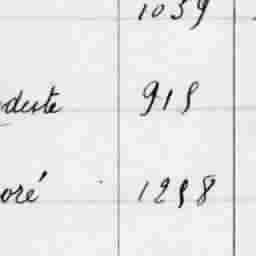 1059
deste 915
oré 1258